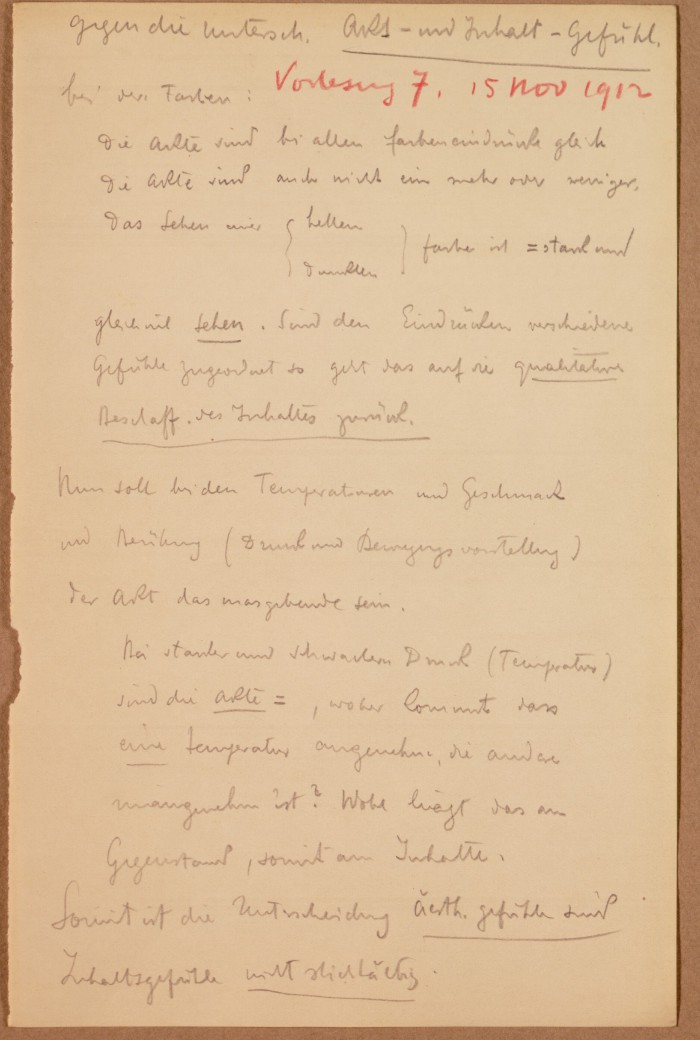 gegen die Untersch. Akt - und Inhalt - Gefühl.
Vorlesung 7. 15 Nov 1912
bei den Farben:
Die Akte sind bei allen Farbeneindrücke gleich
Die Akte sind auch nicht ein mehr oder weniger.
Das Sehen einer { hellen
dunklen } farbe ist = stark und
gleichviel sehen. Sind den Eindrücken verschiedene
Gefühle zugeordnet so geht das auf die qualitative
Beschaff. des Inhaltes zurück.
Nun soll bei den Temperaturen und Geschmack
und Berührung (Druck und Bewegungsvorstellung)
der Akt das masgebende sein.
Bei starkem und schwachem Druck (Temperatur)
sind die Akte =, woher kommt dass
eine Temperatur angenehm, die andere
unangenehm ist? Wohl liegt das am
Gegenstand, somit am Inhalte.
Somit ist die Unterscheidung äesth. gefühle sind
Inhaltsgefühle nicht stichhältig.